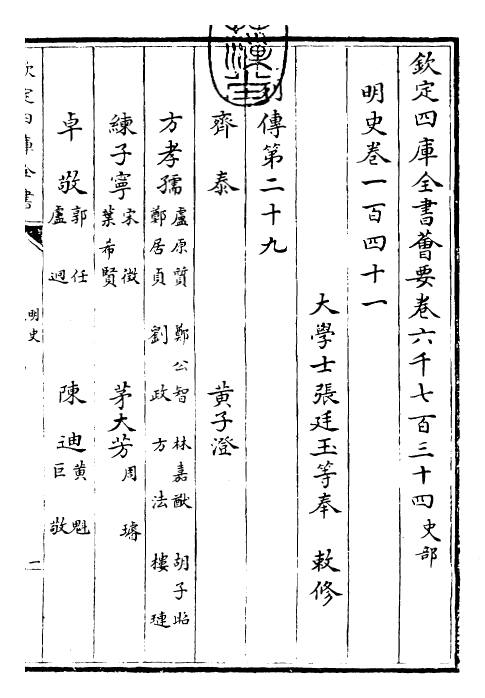 欽定四庫全書薈要卷六千七百三十四史部
明史卷一百四十一
大學士張廷玉等奉 敕修
列傳第二十九
齊泰 黃子澄
方孝孺 盧原質 鄭公智 林嘉猷 胡子昭
鄭居貞 劉政 方法 樓璉
練子寧 宋徵 茅大芳 周璿
葉希賢
卓敬 郭任 陳迪 黃魁
盧迥 巨敬
欽定四庫全書
明史